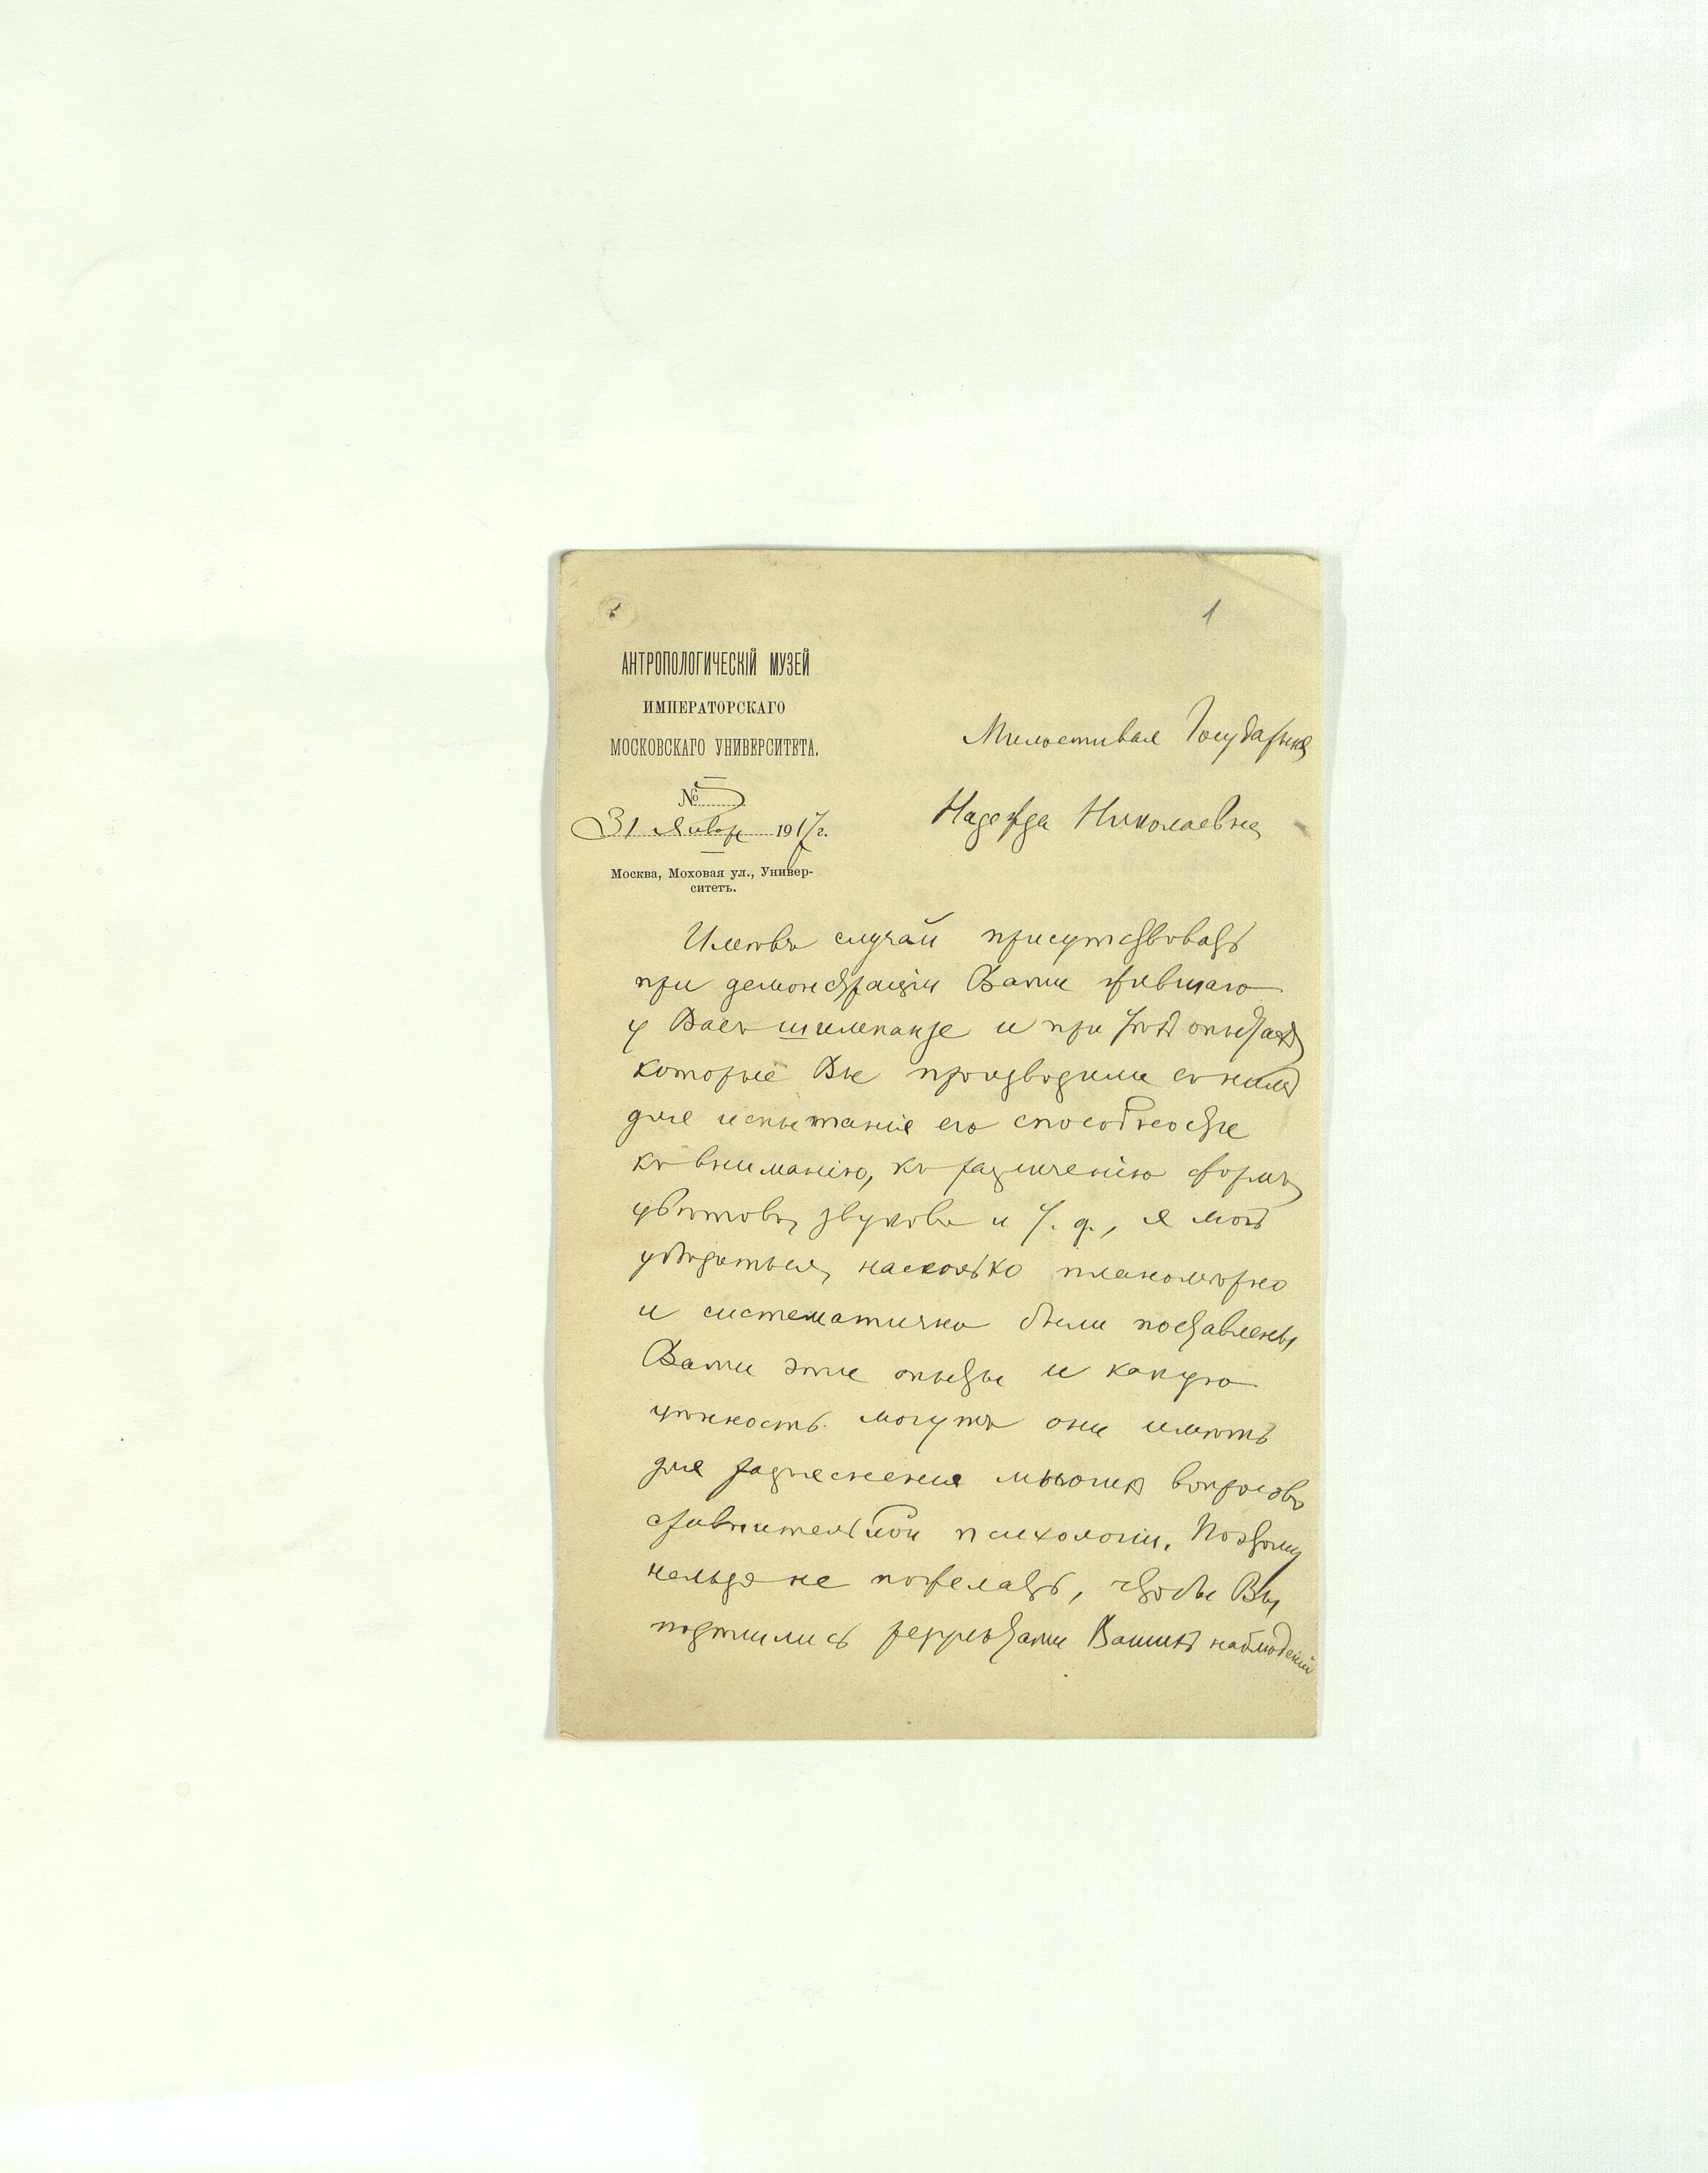 1
АНТРОПОЛОГИЧЕСКІЙ МУЗЕЙ
ИМПЕРАТОРСКАГО
МОСКОВСКАГО УНИВЕРСИТЕТА.
№ 5
31 Января 1917 г.
Москва, Моховая ул., Универ-
ситетъ.
Милостивая Государыня
Надежда Николаевна
Имѣвъ случай присутствовать
при демонстраціи Вами жившаго
у Васъ шимпанзе и при тѣхъ опытахъ,
которые Вы производили съ нимъ
для испытанія его способности
къ вниманію, къ различенію формъ,
цвѣтовъ, звуковъ и т. д., я могъ
убѣдиться, насколько планомѣрно
и систематично были поставлены
Вами эти опыты и какую
цѣнность могутъ они имѣть
для разъясненія многихъ вопросовъ
сравнительной психологіи. Поэтому
нельзя не пожелать, чтобы Вы
подѣлились результатами Вашихъ наблюденій